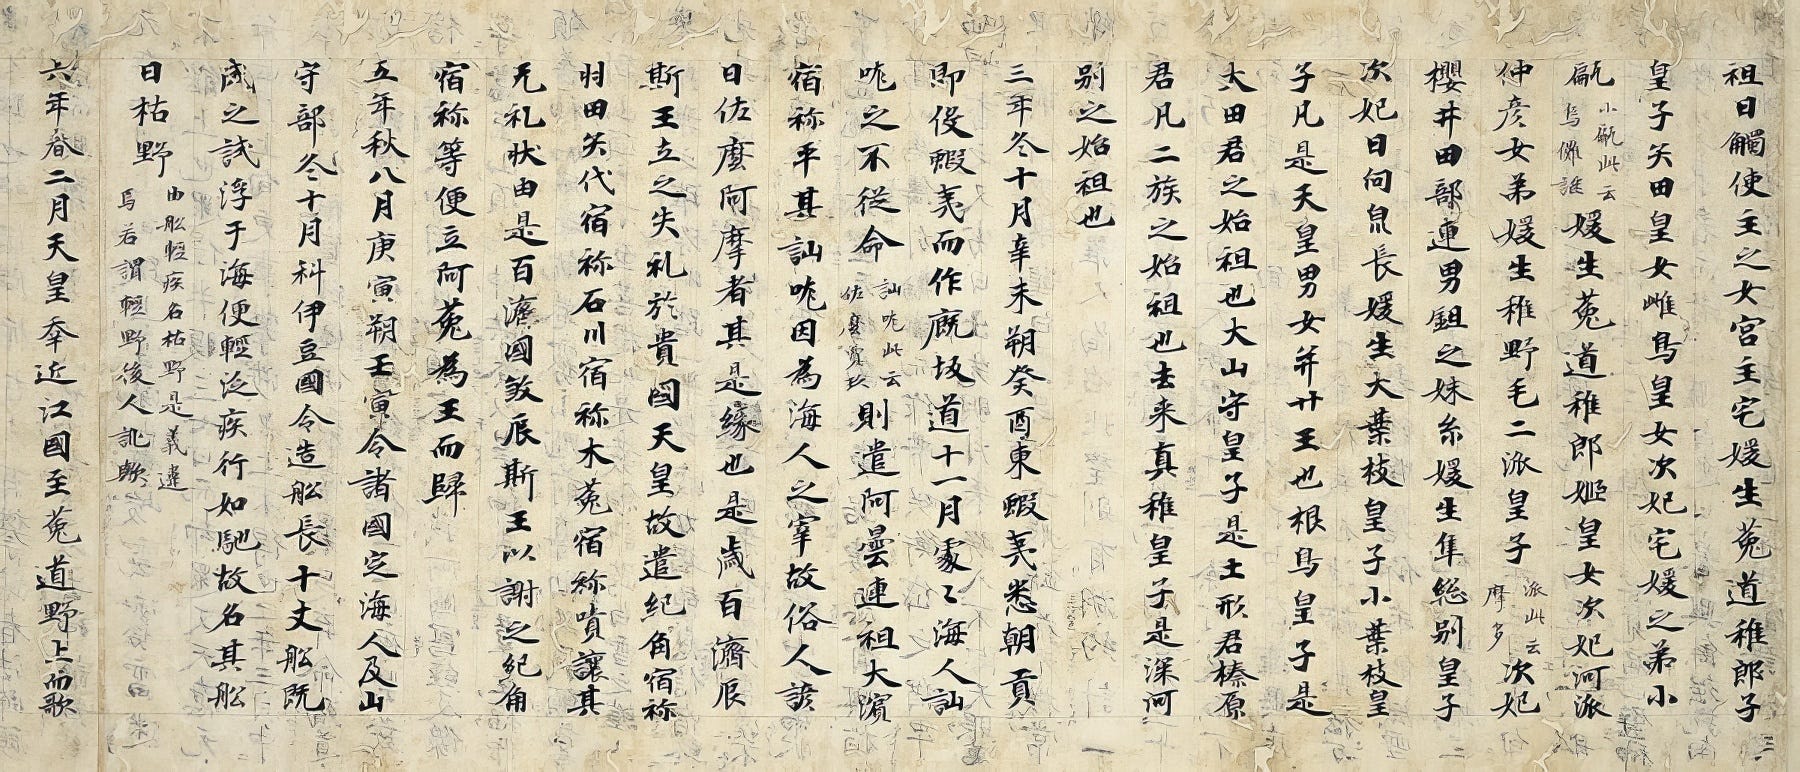 祖日觸使主之女宮主宅媛生菟道稚郎子
皇子矢田皇女雌鳥皇女次妃宅媛之弟小
甂小甂此云烏儺謎媛生菟道稚郎姬皇女次妃河派
仲彦女弟媛生稚野毛二派皇子派此云摩多次妃
櫻井田部連男鉏之妹糸媛生隼総別皇子
次妃日向泉長媛生大葉枝皇子小葉枝皇
子凡是天皇男女并廿王也根鳥皇子是
大田君之始祖也大山守皇子是土形君榛原
君凡二族之始祖也去来真稚皇子是深河
別之始祖也
三年冬十月辛未朔癸酉東蝦夷悉朝貢
即伇蝦夷而作厩坂道十一月處〻海人訕
哤之不従命訕哤此云佐麼賣玖則遣阿曇連祖大濱
宿祢平其訕哤因為海人之宰故俗人諺
日佐麼阿摩者其是緣也是歲百濟辰
斯王立之失礼於貴國天皇故遣紀角宿祢
羽田矢代宿祢石川宿祢木菟宿祢嘖讓其
无礼狀由是百濟國煞辰斯王以謝之紀角
宿祢等便立阿菟為王而歸
五年秋八月庚寅朔壬寅令諸國定海人及山
守部冬十月科伊豆國令造舩長十丈舩既
成之試浮于海便輕泛疾行如馳故名其舩
日枯野由舩輕疾名枯野是義違焉若謂輕野後人訛歟
六年春二月天皇幸近江國至菟道野上而歌